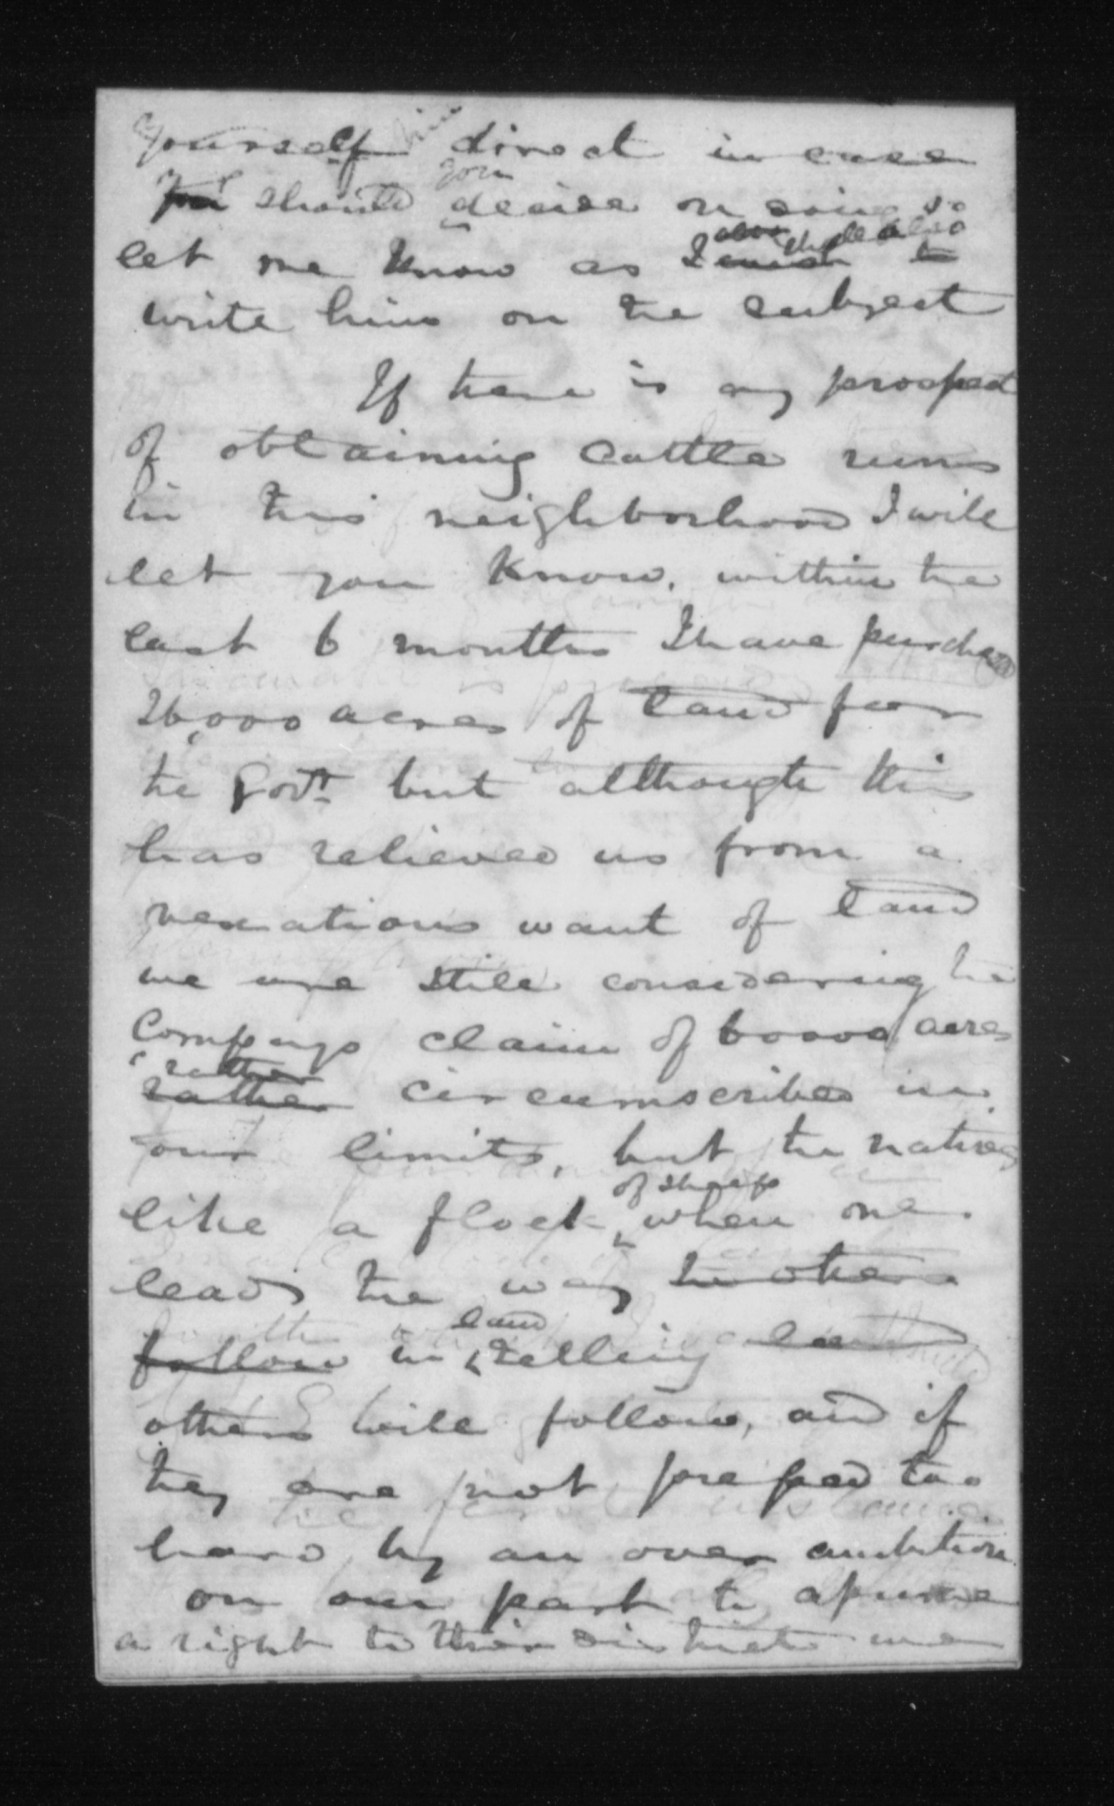 yourself him direct in case
you should you decide on doing so
let me know as I shall also
write him on the subject
If there is any prospect
of obtaining cattle runs
in this neighborhood I will
let you know. within the
last 6 months I have purchased
26,000 acres of land for
the Govt but although this
has relieved us from a
vexatious want of land
we are still considering the
Companys claim of 60000 acres
rather
rather circumscribed in
our limits, but the natives
like a flock of sheep when one
leads the way the others
follow in land selling land
others will follow, and if
they are not pressed too
hard by an over ambition
on our part to assume
a right to their districts we